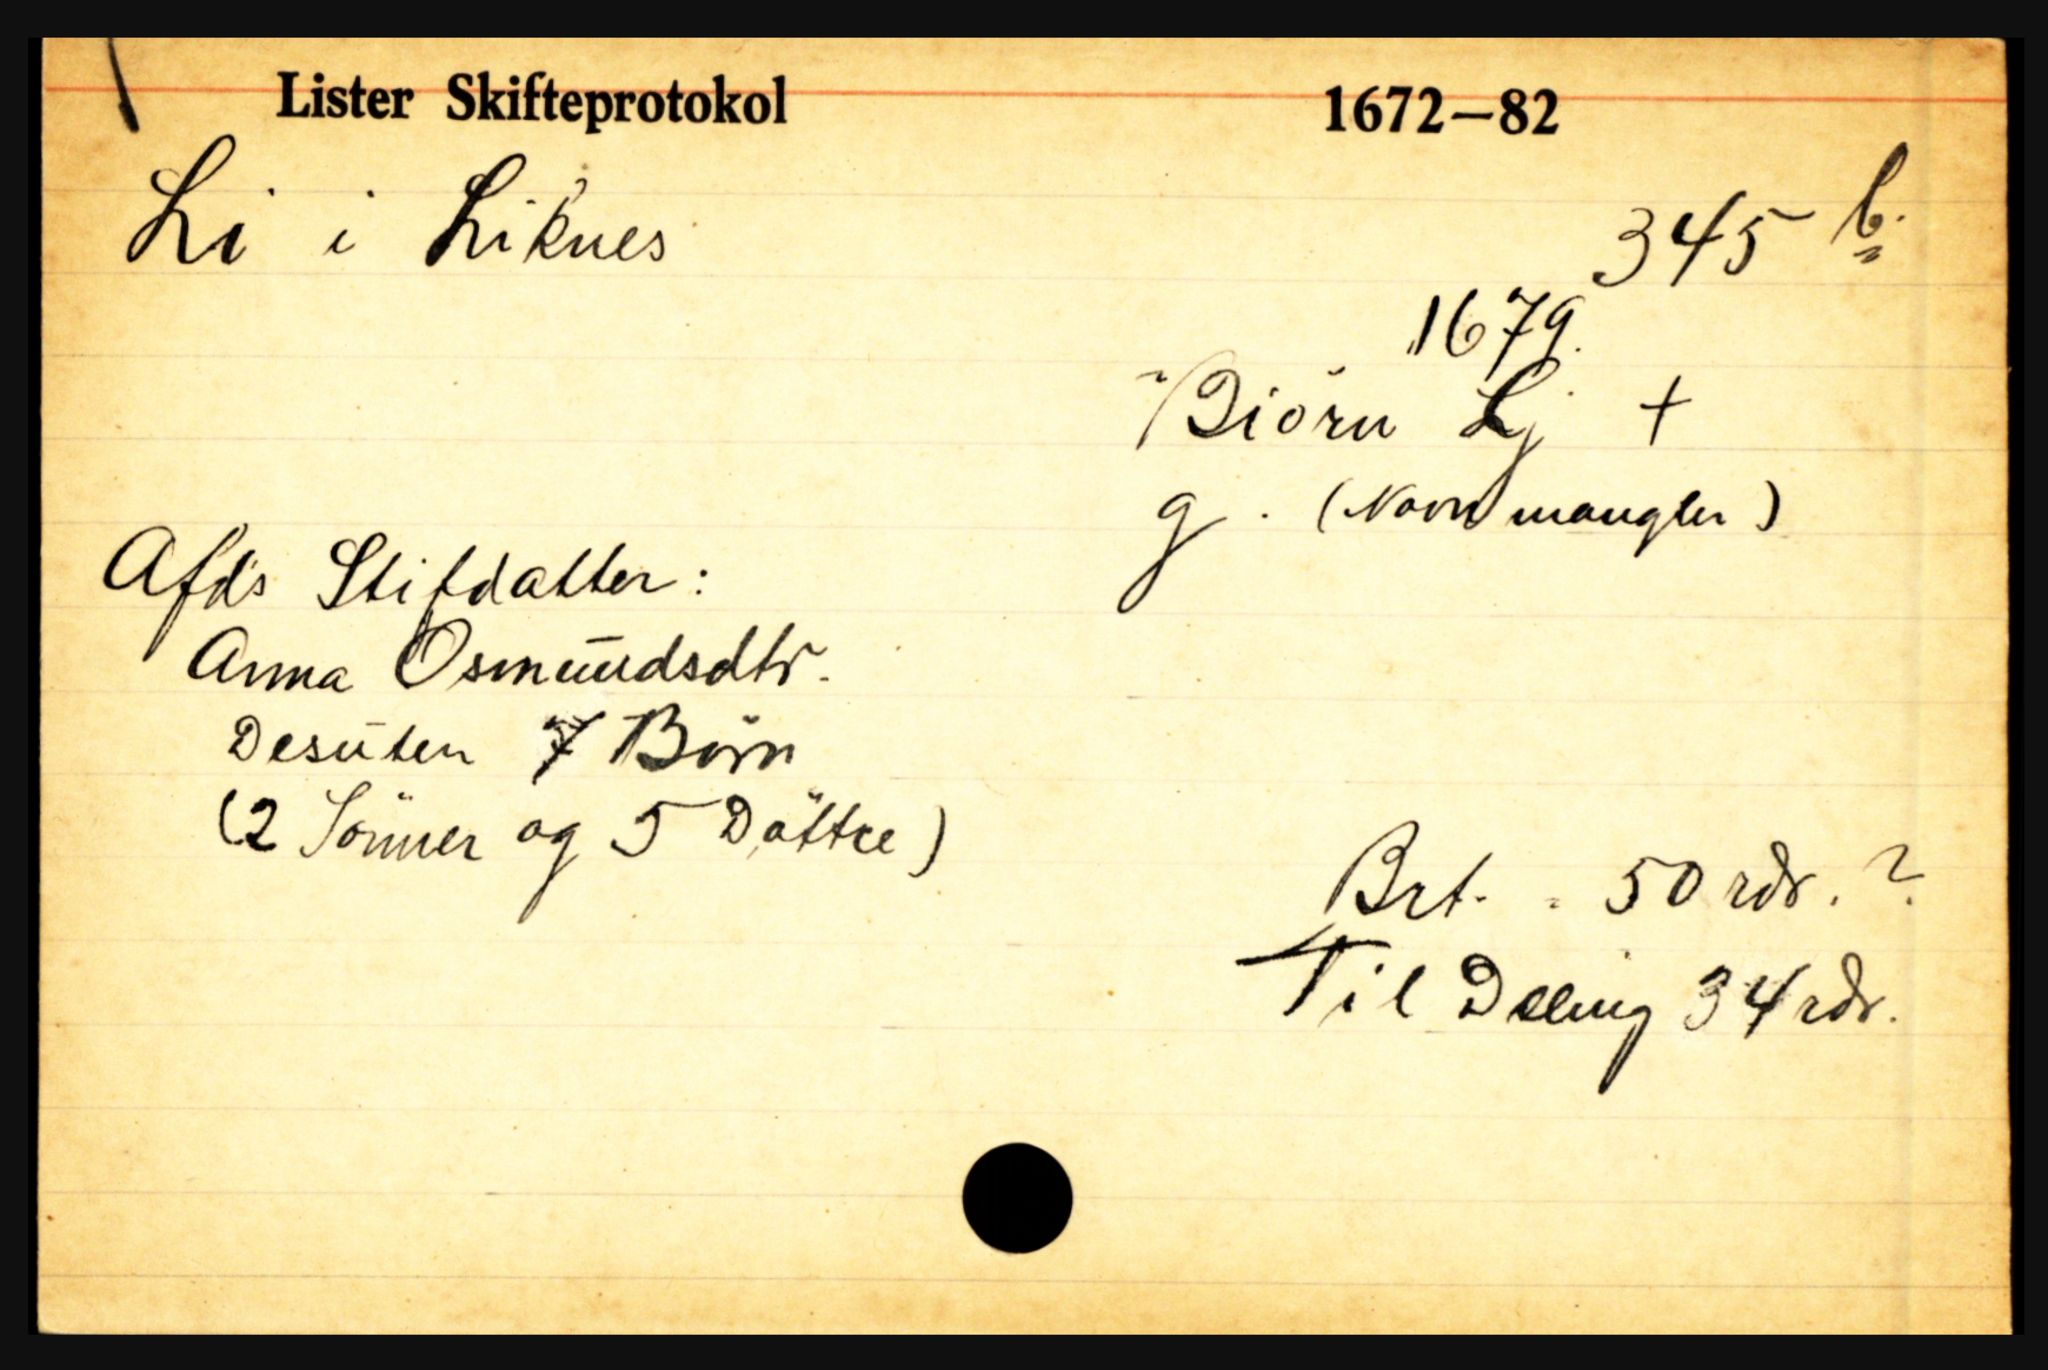 Lister Skifteprotokol 1672—82
Li i Liknes
345 b.
1679.
Biörn Lj +
g. (Navn mangler)
Afd's Stifdatter:
Anna Osmundsdtr.
Desuten 7 Börn
(2 Sönner og 5 Döttre)
Brt. 50 rdr. ?
Til Deling 34 rdr.